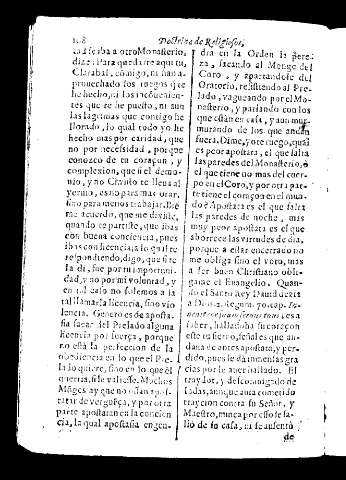 Doctrina de Religiosos,
ta escriba a otro Monasterio,
dize: Para quedarte aqui tu,
Clarabal, cõmigo, ni han a-
prouechado los ruegos que
he hecho, ni las incõuenien-
tes que te he puesto, ni aun
las lagrimas que consigo he
llorado, lo qual todo yo he
hecho mas por caridad, que
no por necessidad, porque
conozco de tu coraçun, y
complexion, que si el demo-
nio, y no Christo te lleua al
yermo, es no para mas orar,
sino para menos trabajar. Biẽ
me acuerdo, que me dixiste,
quando te partiste, que ibas
con buena conciencia, pues
ibas con licencia; a lo qual te
respondiendo, digo, que si te
la di, fue por tu importuni-
dad, y no por mi voluntad, y
en tal caso no solemos a la
tal llamarla licencia, sino vio-
lencia. Genero es de aposta-
sia sacar del Prelado alguna
licencia por fuerça, porque
no està la perfeccion de la
obediencia en lo que el Pre-
lado quiere, sino en lo que èl
querria, si le valiesse. Muchos
Mõges ay que no osan apos-
tatar de verguẽça, y por otra
parte apostatan en la concien
cia, la qual apostasia engen-
dra en la Orden la pere-
za, sacando al Monge del
Coro, y apartandole del
Oratorio, resistiendo al Pre-
lado, vagueando por el Mo-
nasterio, y parlando con los
que estàn en casa, y aun mur-
murando de los que andàn
fuera. Dime, yo te ruego, qual
es peor apostata, el que salta
las paredes del Monasterio, ò
el que tiene no mas del cuer-
po en el Coro, y por otra par-
te tiene el coraçon en el mun-
do? Apostata es el que salta
las paredes de noche, mas
muy peor apostata es el que
aborrece las virtudes de dia,
porque a estar encerrado no
me obliga sino el voto, mas
a ser buen Christiano obli-
game el Euangelio. Quan-
do el Santo Rey Dauid dezia
a Dios, Regum. 7. cap.
saber, hallado ha su coraçon
este tu sieruo, señales que an-
daua de antes apostata, y per-
dido, pues le dà inmensas gra
cias por le auer hallado. El
traydor, y descomulgado de
Iudas, aunque auia cometido
traycion contra su Señor, y
Maestro, nunca por esso se sa-
liò de su casa, ni se ausentò
de